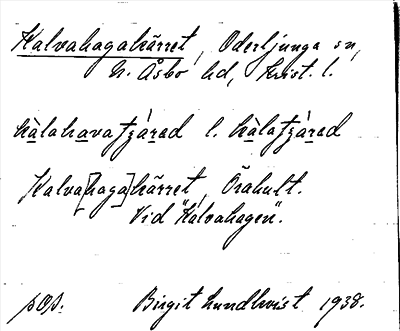 Kalvahagakärret, Oderljunga sn,
N. Åsbo hd, Krist. l.
kàlahavatʃárad l. kàlatʃárad
Kalva[haga]kärret, Örahult.
Vid "Kalvahagen".
pop. Birgit Lundkvist 1938.